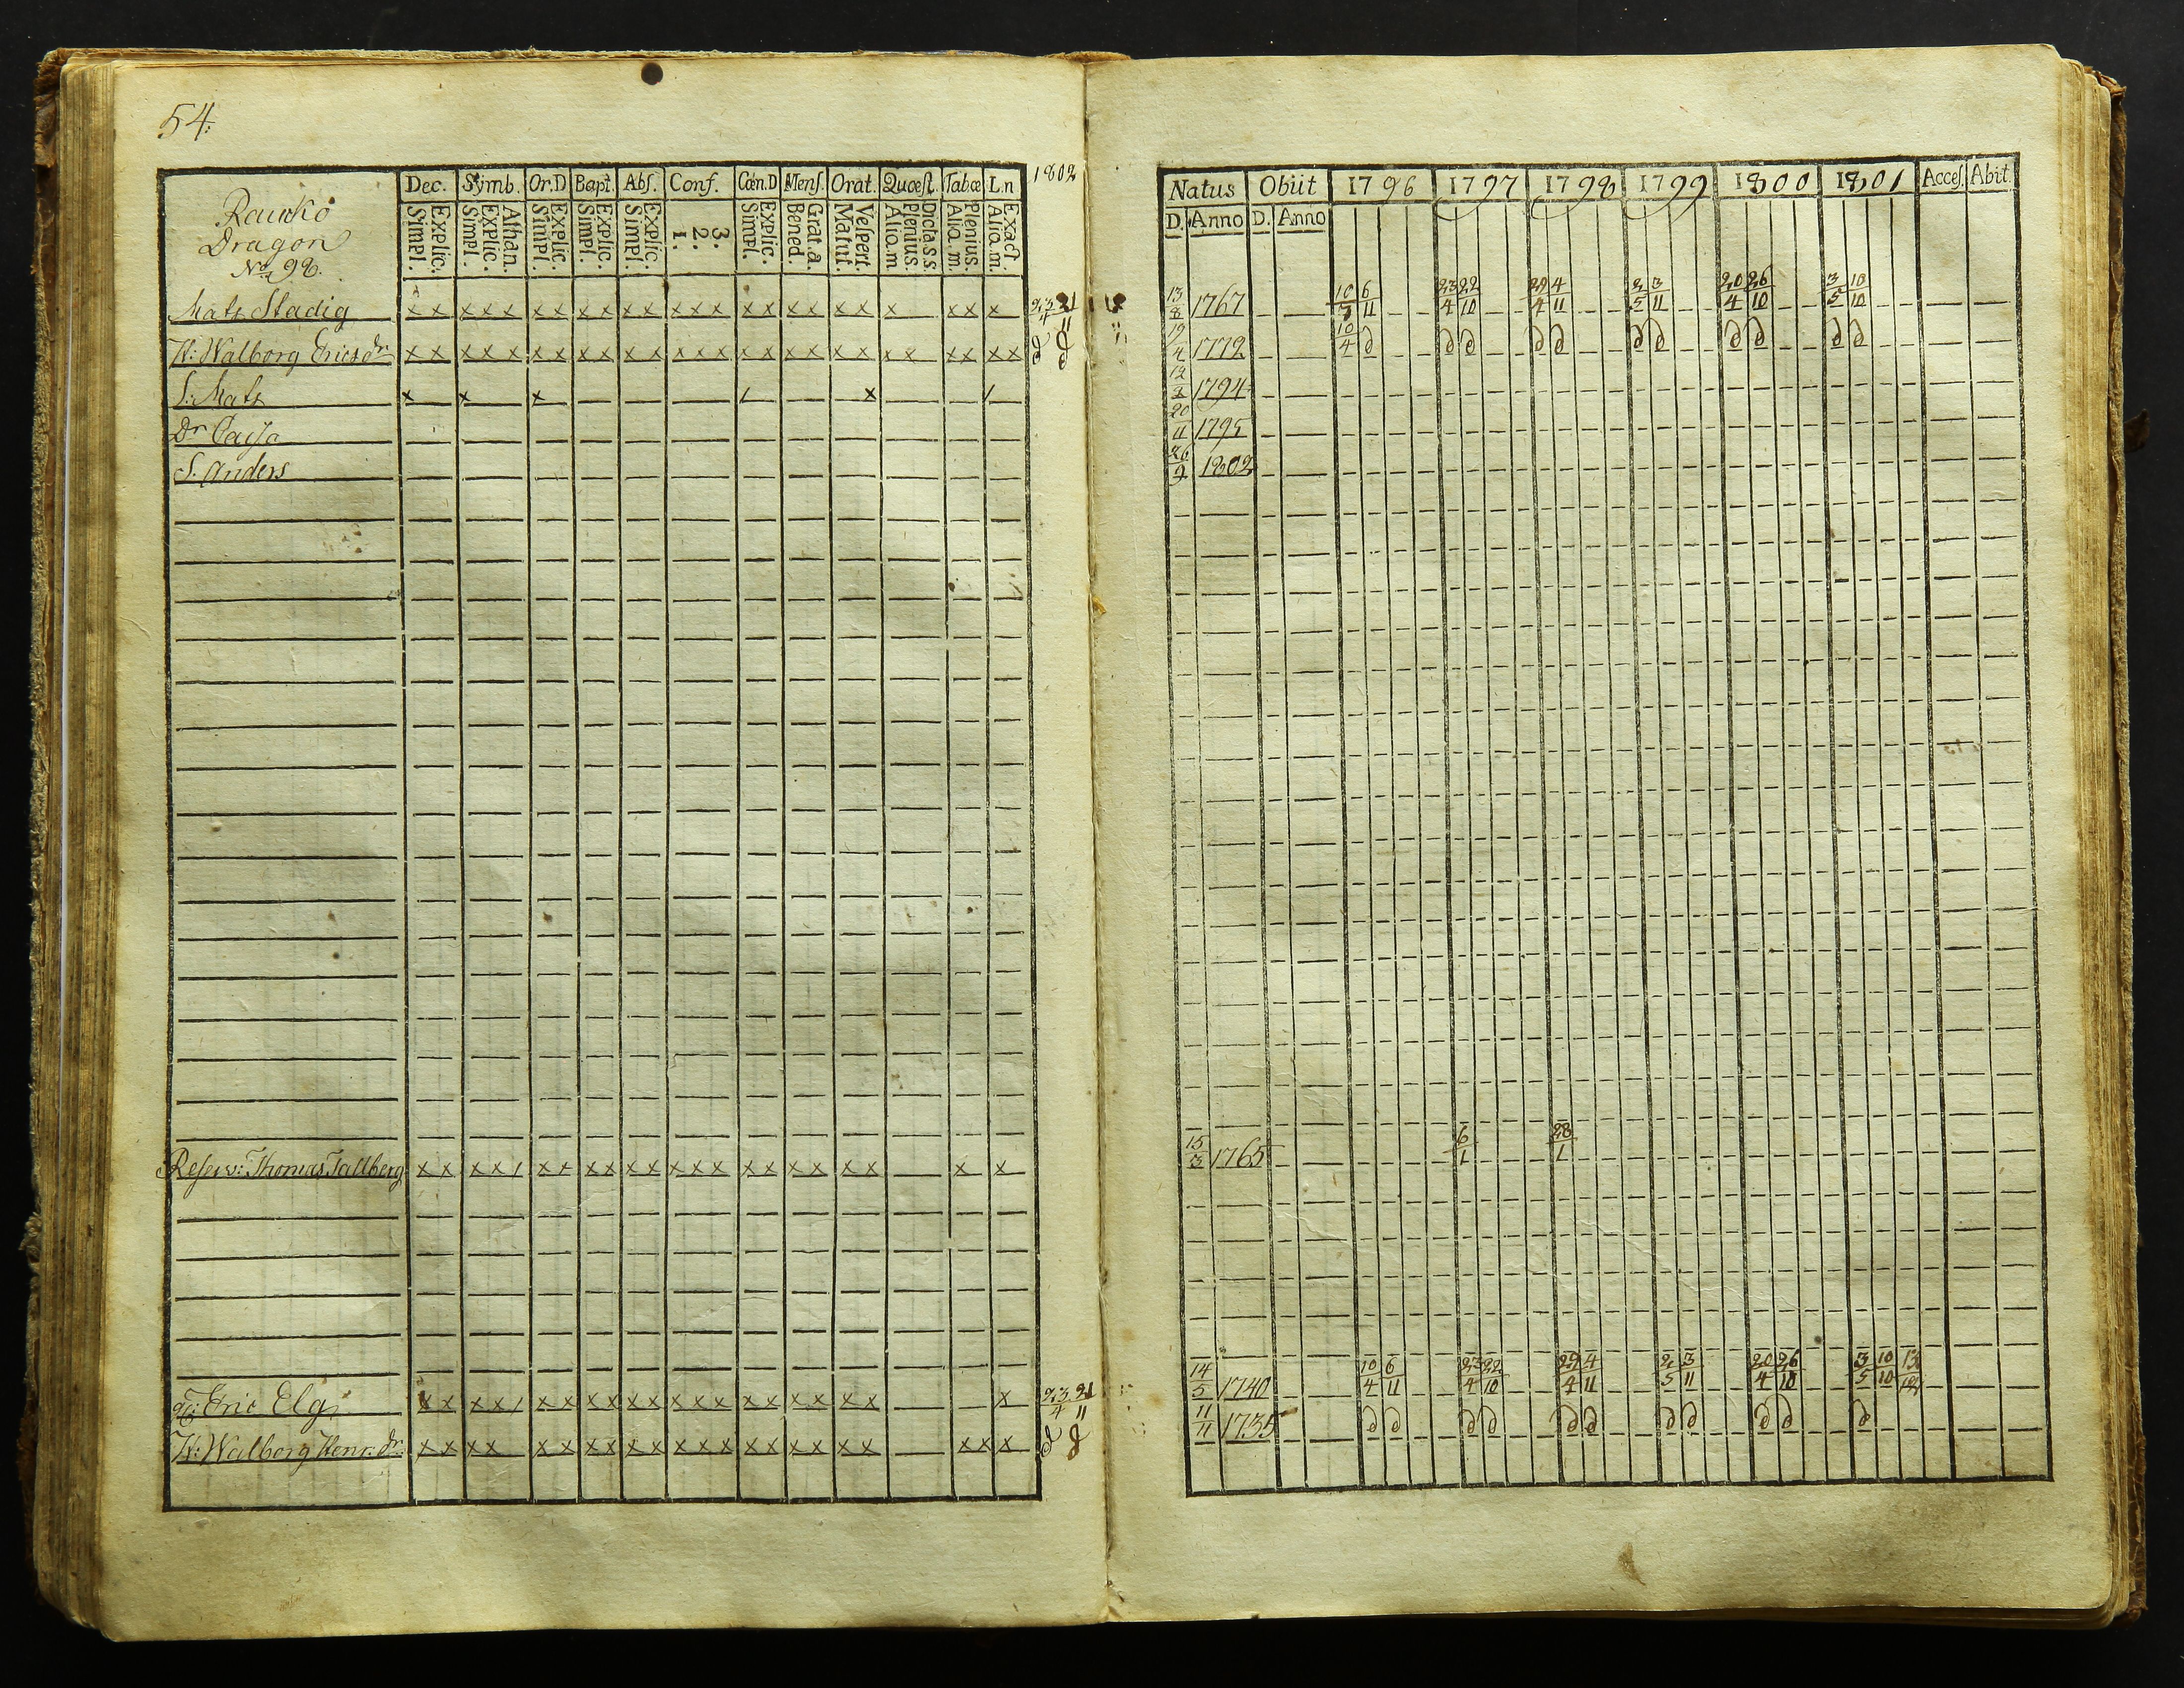 54.
Dec. Symb. Or.D Bapt. Abs. Conf. Cœn.D Mens. Orat. Quæst. Tabœ L.n 1802
Rauko
Dragon
No 98.
Simpl. Explic. Simpl. Explic. Athan. Simpl. Explic. Simpl. Explic. Simpl. Explic. 1. 2. 3. Simpl. Explic. Bened. Grat.a. Matut. Vespert. Alio.m Plenius. Dicta.s.s. Alio.m. Plenius. Alio.m. Exact.
Mats Stadig x x x x x x x x x x x x x x x x x x x x x x x x 23/4 21/11
H: Walborg Ericsdr x x x x x x x x x x x x x x x x x x x x x x x x x x d d
S: Mats x x x / x /
Dr Cajsa
S. Anders
Reserv: Thomas Tallberg x x x x / x x x x x x x x x x x x x x x x x x
g: Eric Elg x x x x / x x x x x x x x x x x x x x x x x 23/4 21/11
H: Walborg Henr:dr x x x x x x x x x x x x x x x x x x x x x x d d
Natus Obiit 1796 1797 1798 1799 1800 1801 Acces. Abit
D. Anno D. Anno
13/8 1767 10/5 6/11 23/4 22/10 29/4 4/11 2/5 3/11 20/4 26/10 3/5 10/10
19/4 1772 10/4 d d d d d d d d d d d
12/2 1794
20/11 1795
26/9 1802
15/3 1765 6/1 28/1
14/5 1740 10/4 6/11 23/4 22/10 29/4 4/11 2/5 3/11 20/4 26/10 3/5 10/10 13/12
11/11 1735 d d d d d d d d d d d